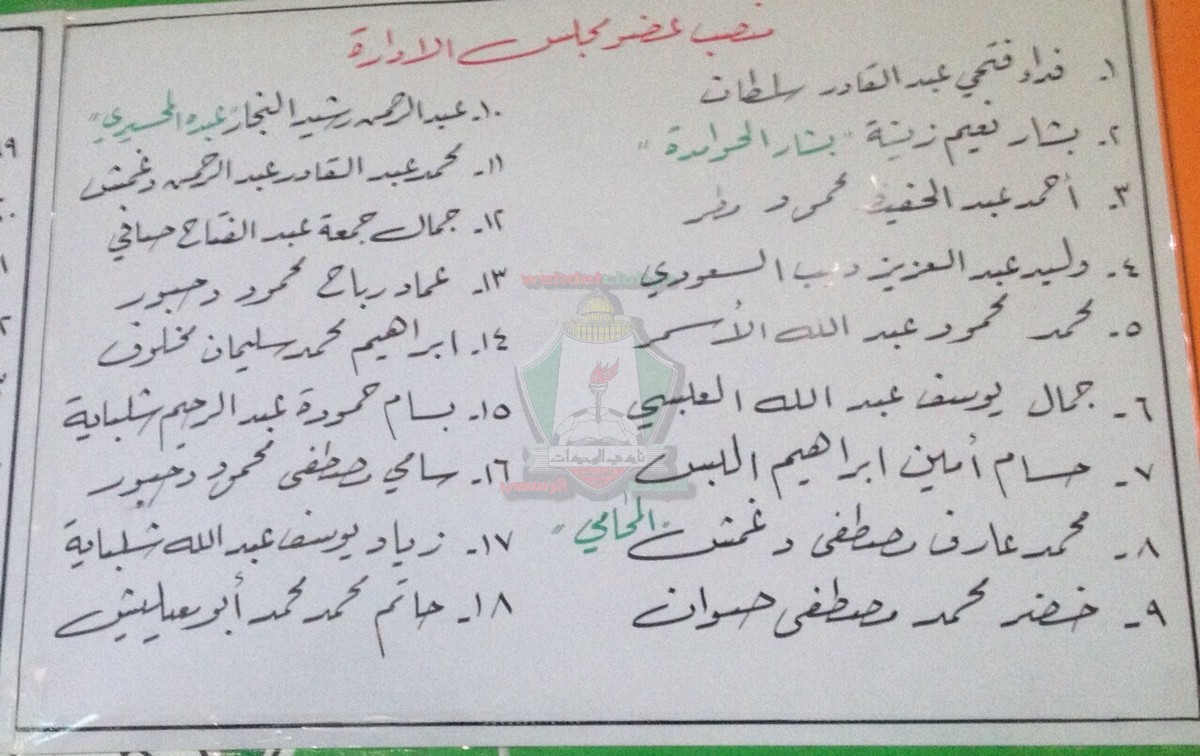 منصب عضو مجلس الادارة
١. فداء فتحي عبد القادر سلطان
٢. بشار نعيم زينة "بشار الحوامدة"
٣. أحمد عبد الحفيظ محمود مطر
٤. وليد عبد العزيز ديب السعودي
٥. محمد محمود عبد الله الأسمر
٦. جمال يوسف عبد الله العلبي
٧. حسام أمين ابراهيم اللبس
٨. محمد عارف مصطفى دغمش "المحامي"
٩. خضر محمد مصطفى صوان
١٠. عبد الرحمن رشيد النجار "عبده المحسيري"
١١. محمد عبد القادر عبد الرحمن دغمش
١٢. جمال جمعة عبد الفتاح صافي
١٣. عماد رباح محمود دحبور
١٤. ابراهيم محمد سليمان مخلوف
١٥. بسام حمودة عبد الرحيم شلباية
١٦. سامي مصطفى محمود دحبور
١٧. زياد يوسف عبد الله شلباية
١٨. حاتم محمد محمد أبو معيليش
نادي الوحدات